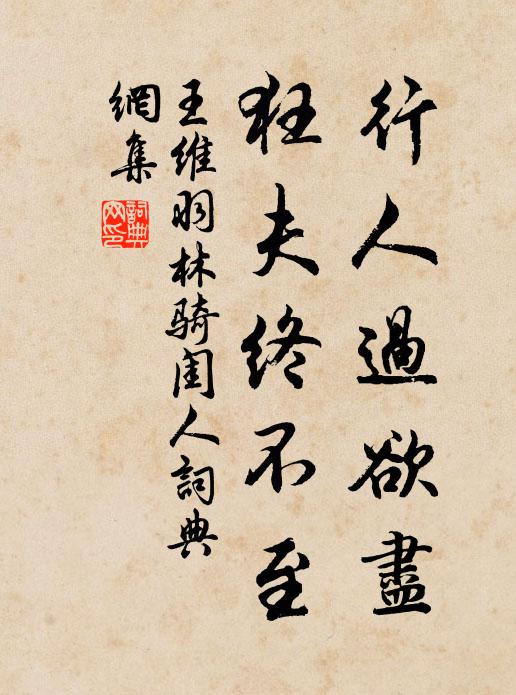 行人過欲盡
狂夫終不至
王維羽林騎閨人詞典
網集
詞典
网印